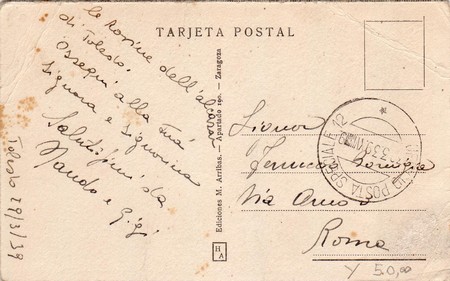 TARJETA POSTAL
Le Rovine dell'alcazar
di Toledo.
Ossequi alla Tua
Signora e Signorina
Saluti da
Nando e Gigi
Toledo 29/3/39
Ediciones M. Arribas. - Apartado 190. - Zaragoza
HA
Signor
Via
Roma
POSTA SPECIALE 12
Y 50,00